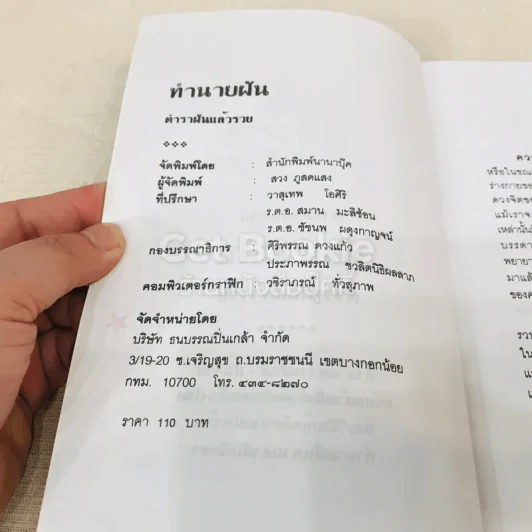 ทำนายฝัน
ตำราฝันแล้วรวย
จัดพิมพ์โดย : สำนักพิมพ์นานาบุ๊ค
ผู้จัดพิมพ์ : สวง ภูสดแสง
ที่ปรึกษา : วาสุเทพ โอศิริ
ร.ต.อ. สมาน มะลิซ้อน
ร.ต.อ. ชัชนพ ผดุงกาญจน์
กองบรรณาธิการ : ศิริพรรณ ดวงแก้ว
ประภาพรรณ ชวลิตนิธิผลลาภ
คอมพิวเตอร์กราฟิก : วชิราภรณ์ ทั่วสุภาพ
Get Bookie
จัดจำหน่ายโดย
บริษัท ธนบรรณปิ่นเกล้า จำกัด
3/19-20 ซ.เจริญสุข ถ.บรมราชชนนี เขตบางกอกน้อย
กทม. 10700 โทร. ๔๓๔-๘๒๗๐
ราคา 110 บาท
หรือในขณ
ร่างกายขอ
ดวงจิตขอ
แม้เราจ
เหล่านั้น
บรรดา
พยายา
มาแล้
ของค
รวบ
ใน
แ